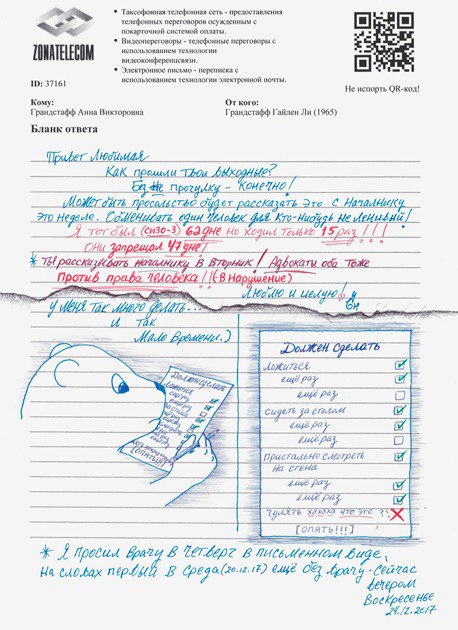 ZONATELECOM
• Таксофонная телефонная сеть - предоставления
телефонных переговоров осужденным с
покарточной системой оплаты.
• Видеопереговоры - телефонные переговоры с
использованием технологии
видеоконференцсвязи.
• Электронное письмо - переписка с
использованием технологии электронной почты.
ID: 37161
Не испорть QR-код!
Кому:
Грандстафф Анна Викторовна
От кого:
Грандстафф Гайлен Ли (1965)
Бланк ответа
Привет Любимая
Как прошли твои выходные?
Без прогулку - конечно!
Может быть просольство будет рассказать это с началнику
это неделе. Обменивать один человек для кто-нибудь не ленивый!
Я тот был (СИЗО-3) 62 дне но ходил только 15 раз!!!
Они запрещал 47 дне!
* Ты рассказвать началнику в вторник! Адвокаты оба тоже
Против права человека!! (в нарушение)
Люблю и целую!
у меня так много делать...
и так
мало времени.)
Должен сделать
ложиться
ещё раз
ещё раз
сидеть за столом
ещё раз
ещё раз
пристально смотреть
на стена
ещё раз
ещё раз
гулять хахаха что это?!
[опять!!!]
Должен сделать
ложиться
[опять!!!]
* Я просил врачу в четверг в письменном виде,
на словах первый в среда (20.12.17) ещё без врачу - сейчас
вечером
Воскресенье
24.12.2017